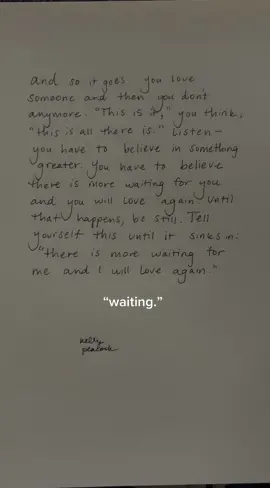 and so it goes you love
someone and then you don't
anymore. "This is it," you think,
"this is all there is." Listen—
you have to believe in something
greater. You have to believe
there is more waiting for you
and you will love again. Until
that happens, be still. Tell
yourself this until it sinks in:
"there is more waiting for
me and I will love again."
"waiting."
kelly
peacock